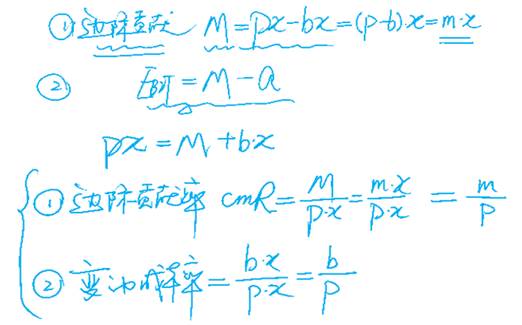 ①边际贡献 M=px-bx=(p-b)·x=m·x
② EBIT=M-a
px=M+b·x
①边际贡献率 cmR=M/p·x=m·x/p·x=m/p
②变动成本率=b·x/p·x=b/p